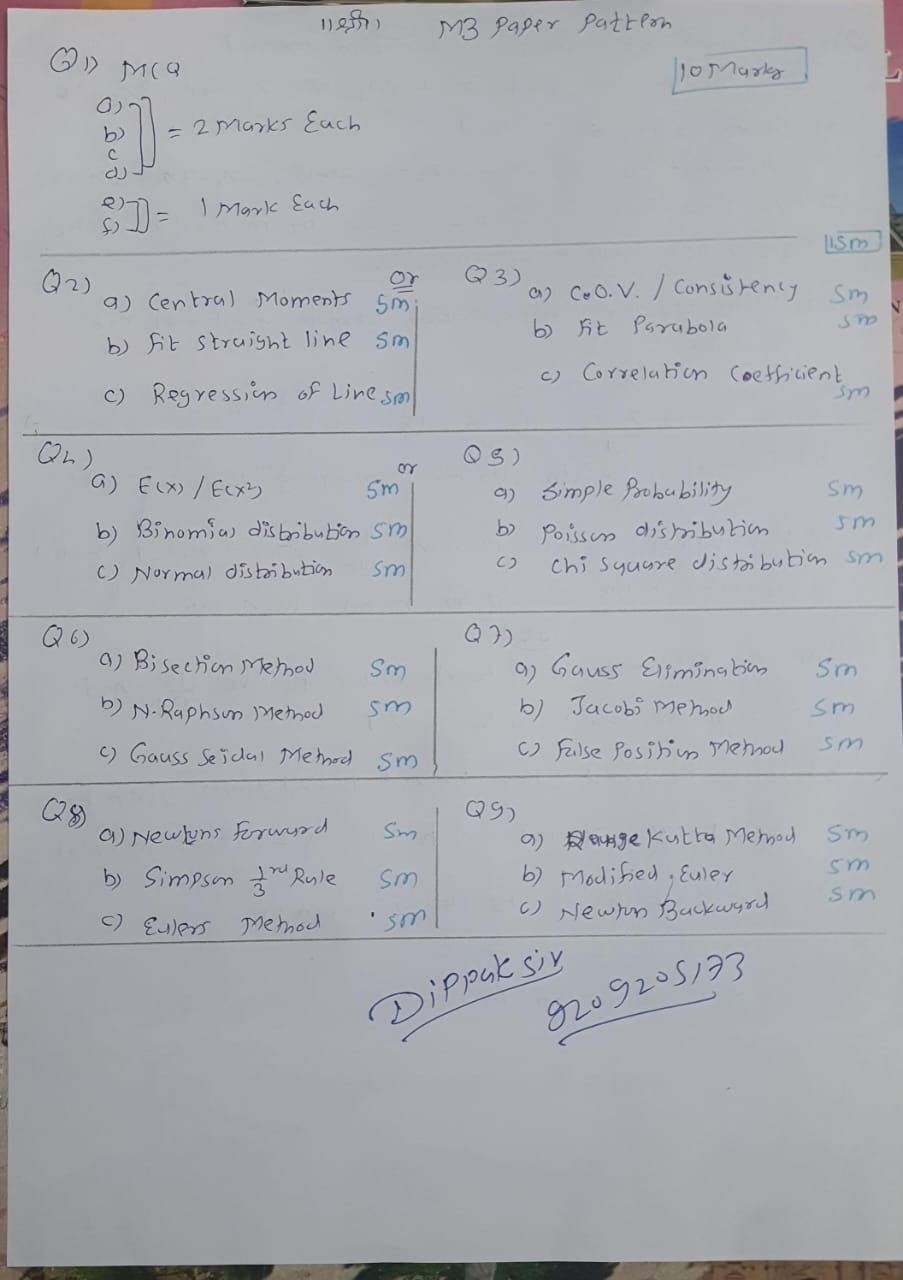 ॥श्री॥ M3 Paper Pattern
Q1) MCQ 10 Marks
a)
b) = 2 Marks Each
c
d)
e)
f) = 1 Mark Each
15m
Q2) or
a) Central Moments 5m
b) fit straight line 5m
c) Regression of Line 5m
Q3)
a) C.O.V. / Consistency 5m
b) fit Parabola 5m
c) Correlation Coefficient 5m
Q4) or
a) E(x) / E(x2) 5m
b) Binomial distribution 5m
c) Normal distribution 5m
Q5)
a) Simple Probability 5m
b) Poisson distribution 5m
c) Chi square distribution 5m
Q6)
a) Bisection Method 5m
b) N-Raphson Method 5m
c) Gauss Seidal Method 5m
Q7)
a) Gauss Elimination 5m
b) Jacobi Method 5m
c) False Position Method 5m
Q8)
a) Newtons Forward 5m
b) Simpson 1/3 rd Rule 5m
c) Eulers Method 5m
Q9)
a) Kutta Method 5m
b) Modified Euler 5m
c) Newton Backward 5m
Dippak sir
9209205173